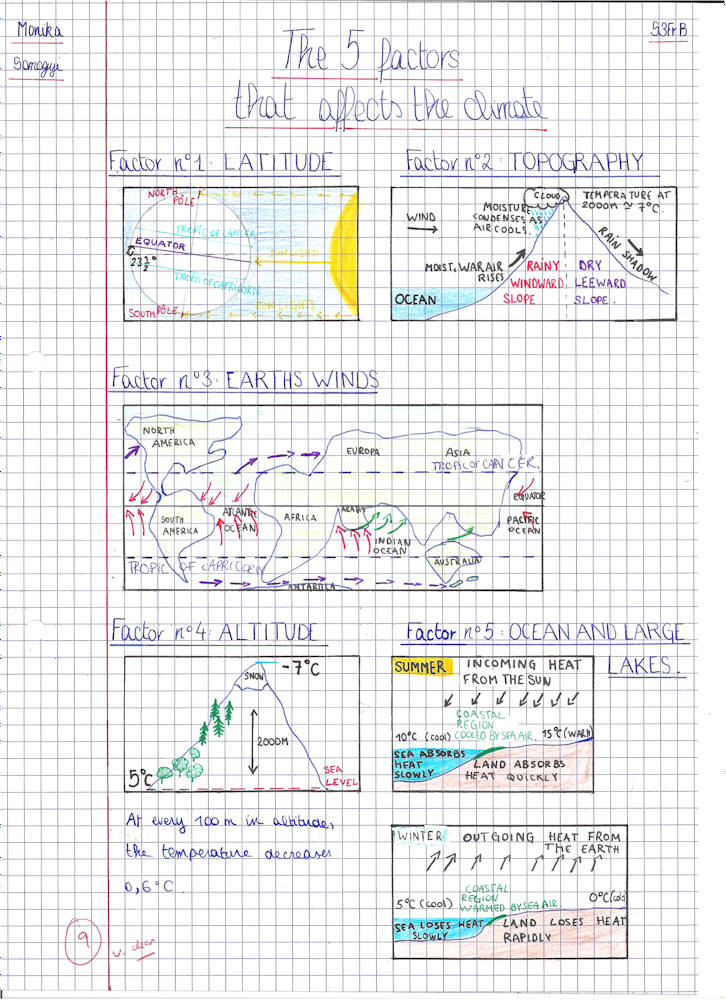 Monika
Somogyi
S3FrB
The 5 factors
that affects the climate
Factor n°1: LATITUDE
NORTH
PÔLE
TROPIC OF CANCER
EQUATOR
23 1/2°
SUN LIGHTS
TROPIC OF CAPRICORN
SUN LIGHTS
SOUTH PÔLE
Factor n°2: TOPOGRAPHY
CLOUD
TEMPERATURE AT
2000M ≃ 7°C.
MOISTURE
CONDENSES AS
AIR COOLS.
WIND
RAIN SHADOW
MOIST, WAR AIR
RISES
RAINY
WINDWARD
SLOPE
DRY
LEEWARD
SLOPE.
OCEAN
Factor n°3: EARTHS WINDS
NORTH
AMERICA
EUROPA
ASIA
TROPIC OF CANCER.
EQUATOR
SOUTH
AMERICA
ATLANTIC
OCEAN
AFRICA
ARABIE
INDIAN
OCEAN
PACIFIC
OCEAN
AUSTRALIA
TROPIC OF CAPRICORN
Factor n°4: ALTITUDE
-7°C
SNOW
2000M
5°C
SEA
LEVEL
At every 100 m in altitude,
the temperature decreases
0,6°C.
Factor n°5: OCEAN AND LARGE
LAKES.
SUMMER
INCOMING HEAT
FROM THE SUN
COASTAL
REGION
COOLED BY SEA AIR.
10°C (cool)
15°C (WARM)
SEA ABSORBS
HEAT
SLOWLY
LAND ABSORBS
HEAT QUICKLY
WINTER
OUTGOING HEAT FROM
THE EARTH
COASTAL
REGION
WARMED BY SEA AIR.
5°C (cool)
0°C (cold)
SEA LOSES HEAT
SLOWLY
LAND LOSES HEAT
RAPIDLY
9
v. clear